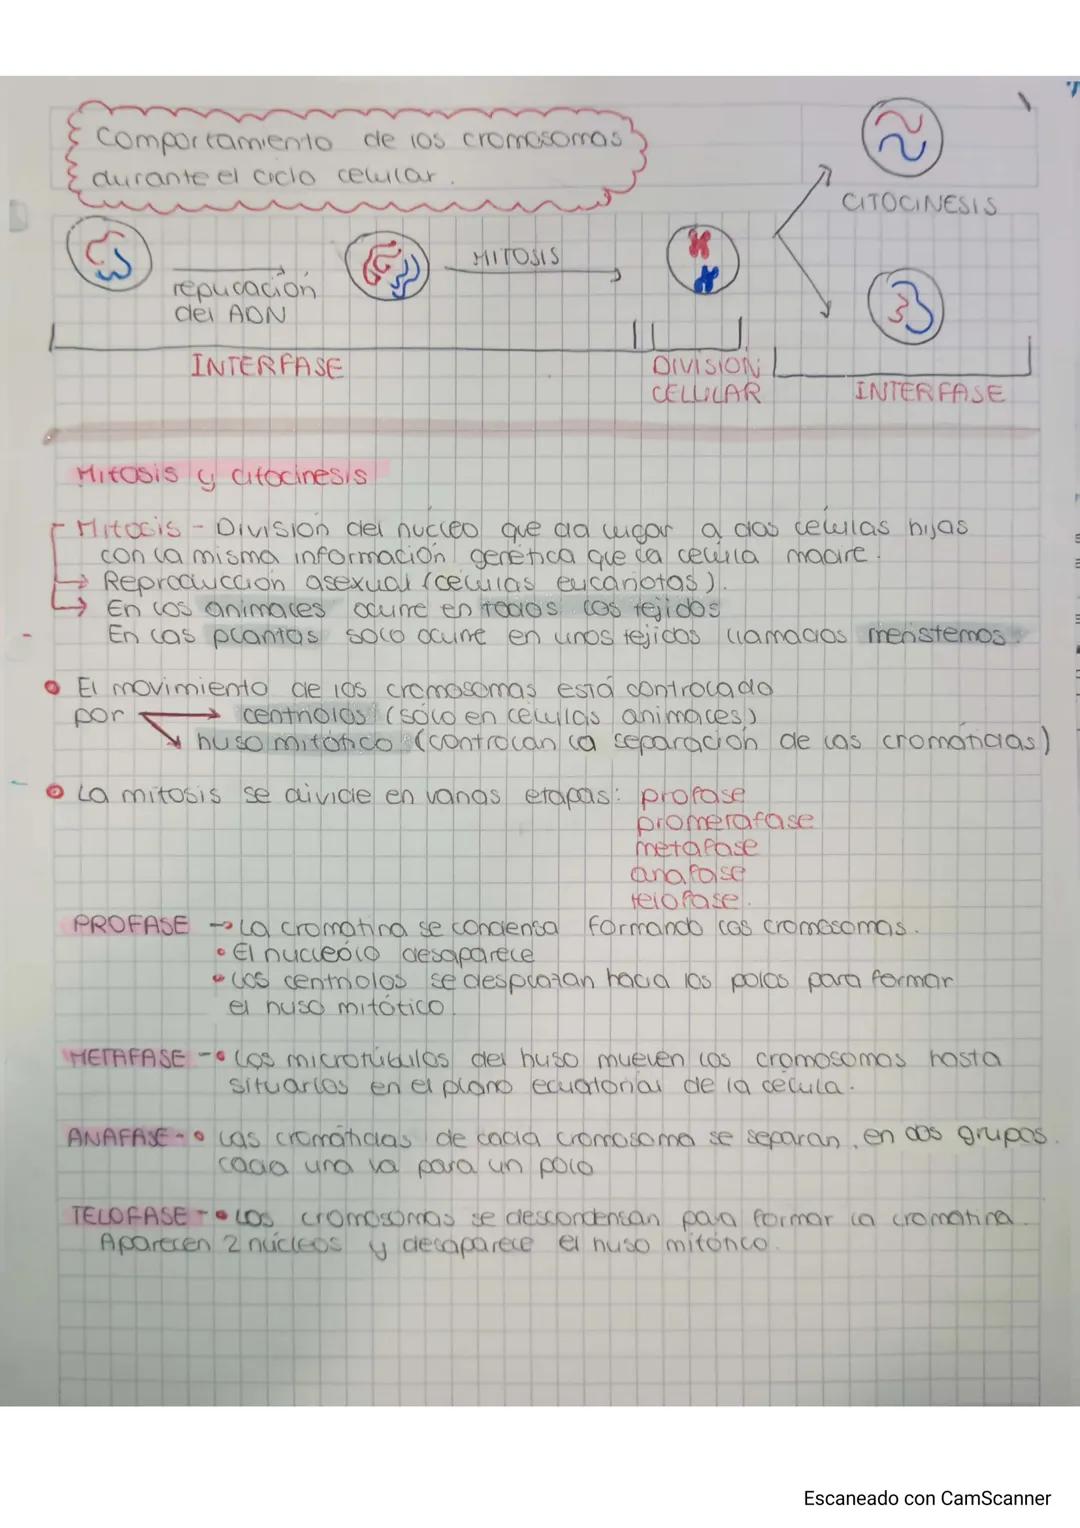 Comportamiento de los cromosomas
durante el ciclo celular.
CITOCINESIS
MITOSIS
replicación
del ADN
INTERFASE
DIVISIÓN
CELULAR
INTERFASE
Mitosis y citocinesis
Mitosis - División del nucleo que da lugar a dos celulas hijas
con la misma información genética que la celula madre.
→ Reproducción asexual (celulas eucariotas).
→ En los animales ocurre en todos los tejidos
En las plantas solo ocurre en unos tejidos llamados meristemos.
• El movimiento de los cromosomas está controlado
por → centriolos (sólo en celulas animales)
huso mitótico (controlan la separación de las cromátidas)
• La mitosis se divide en varias etapas: profase
prometafase
metafase
anafase
telofase.
PROFASE → La cromatina se condensa formando los cromosomas.
• El nucleólo desaparece
• Los centriolos se desplazan hacia los polos para formar
el huso mitótico.
METAFASE - • Los microtúbulos del huso mueven los cromosomas hasta
situarlos en el plano ecuatorial de la celula.
ANAFASE - • Las cromátidas de cada cromosoma se separan en dos grupos.
cada una va para un polo
TELOFASE - • Los cromosomas se descondensan para formar la cromatina.
Aparecen 2 núcleos y desaparece el huso mitótico.
Escaneado con CamScanner